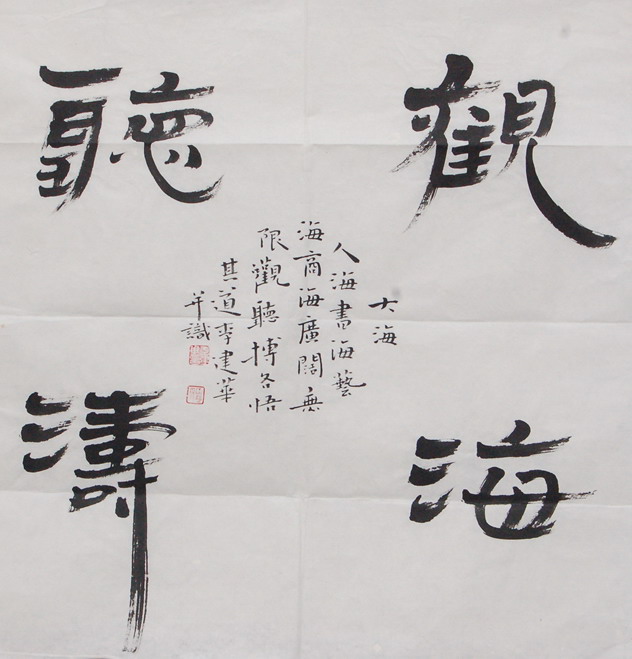 觀海
聽濤
大海
人海書海藝
海商海廣闊無
限觀聽搏各悟
其道李建華
并識